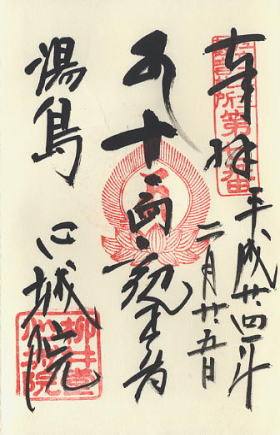 奉拝
平成廿四年
二月廿五日
十一面観世音
湯島 心城院
柳井堂
心城院